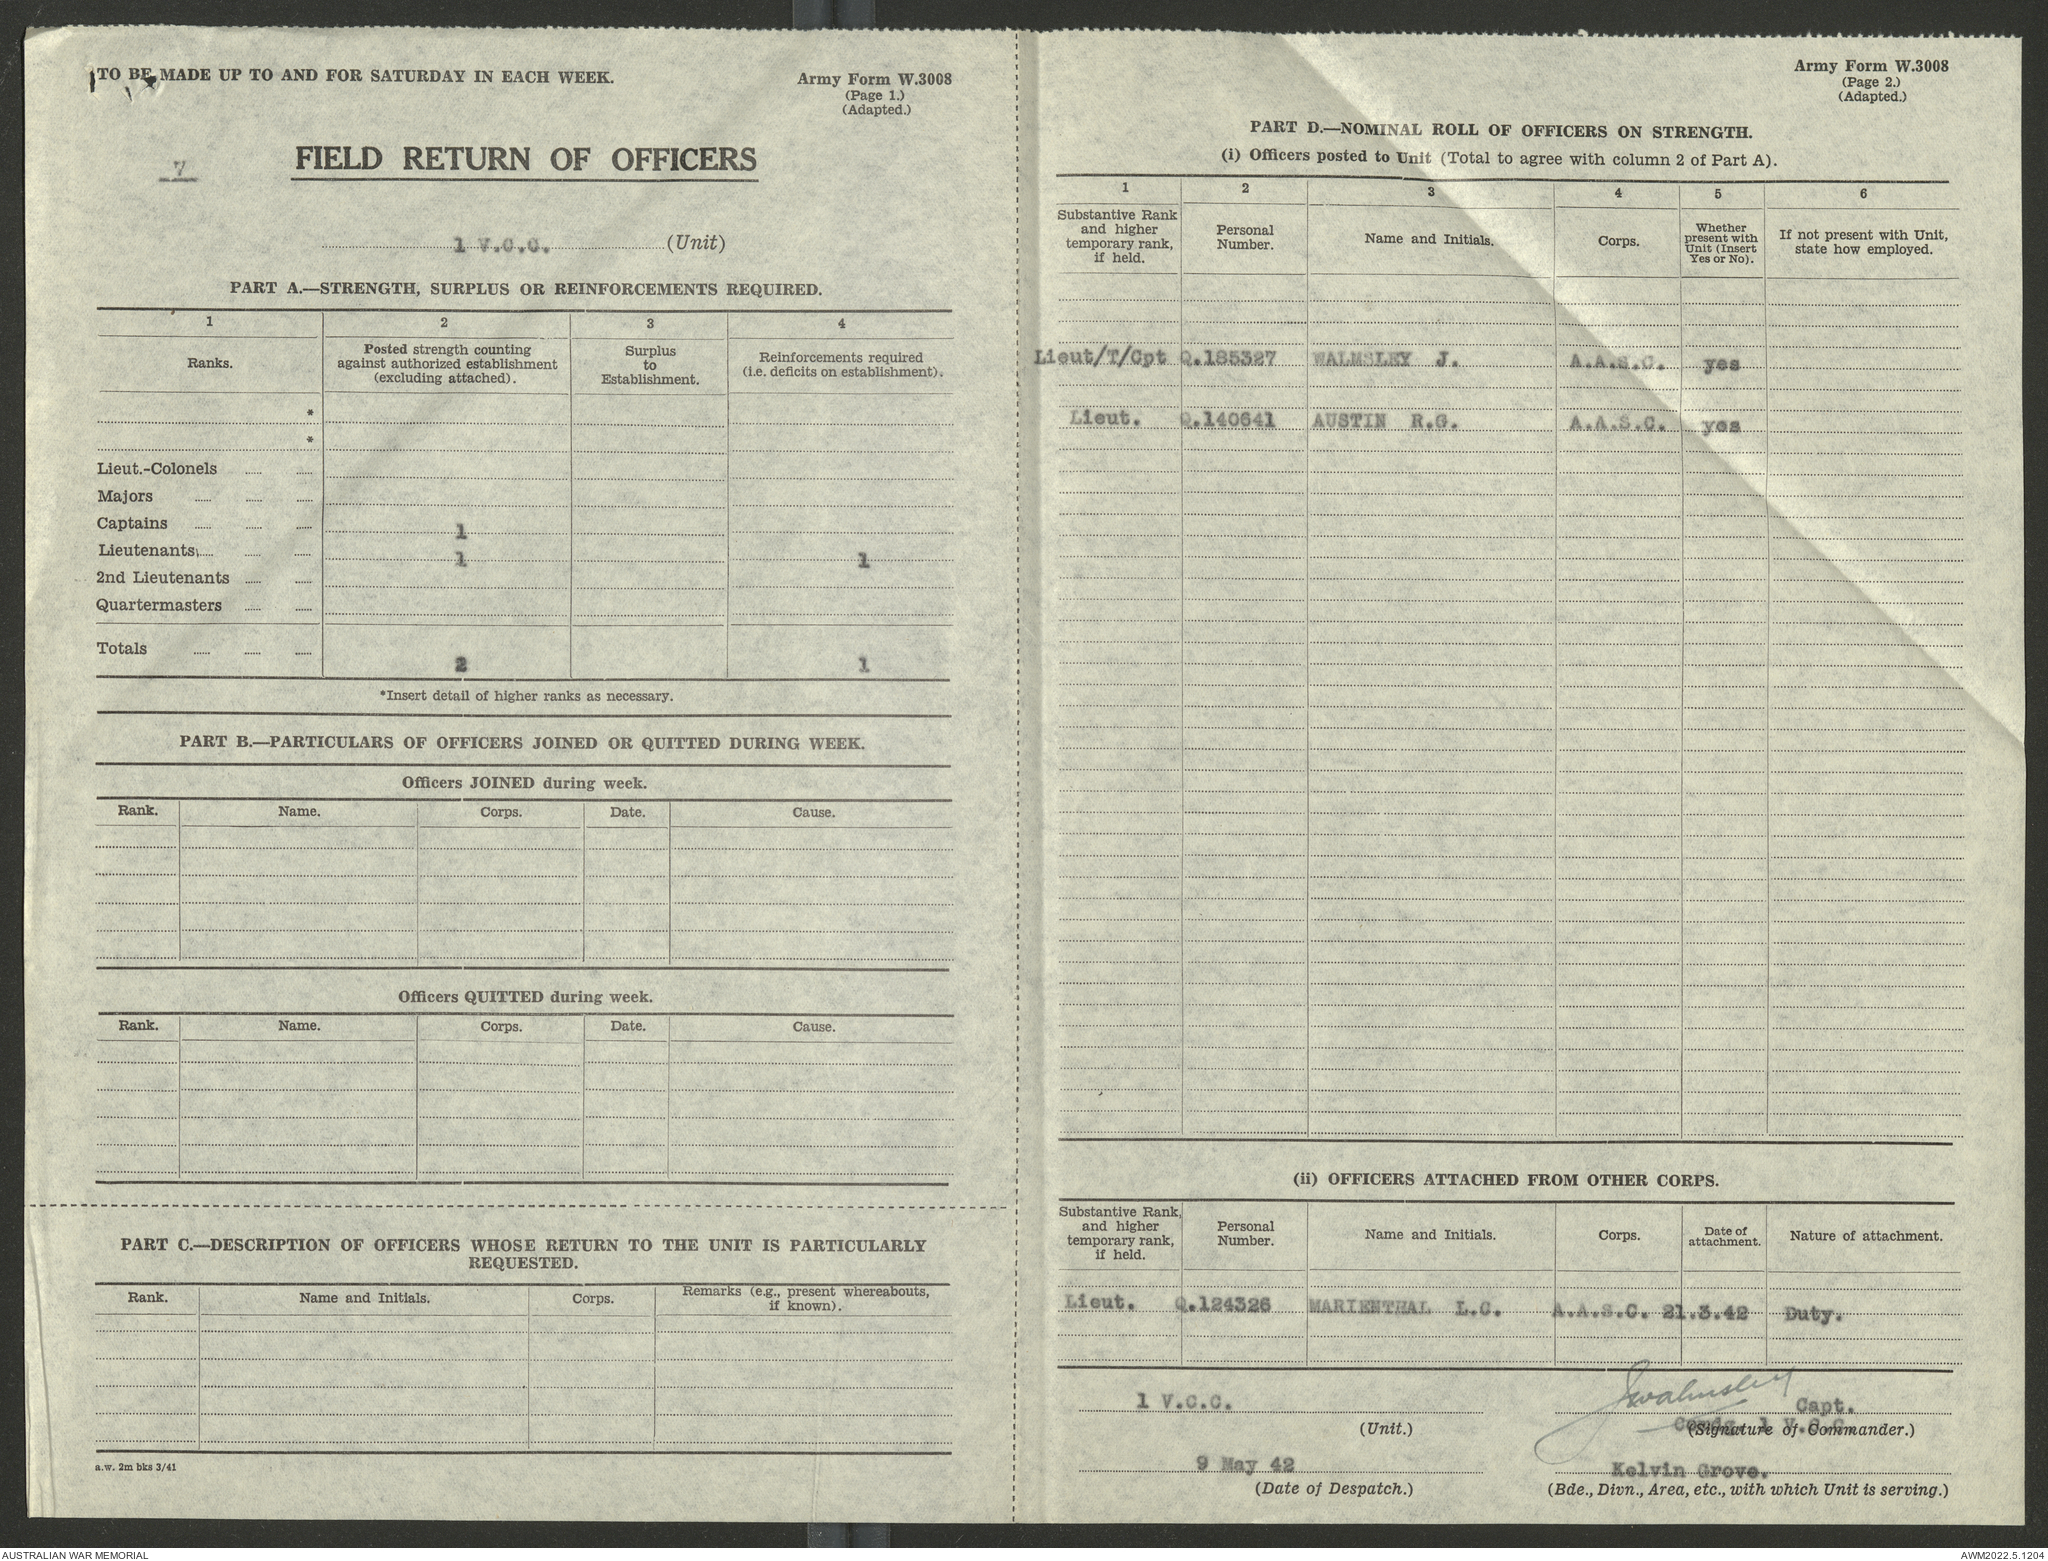 TO BE MADE UP TO AND FOR SATURDAY IN EACH WEEK.
Army Form W.3008
(Page 1.)
(Adapted.)
7
FIELD RETURN OF OFFICERS
1 V.C.C. (Unit)
PART A.—STRENGTH, SURPLUS OR REINFORCEMENTS REQUIRED.
1 2 3 4
Ranks. Posted strength counting against authorized establishment (excluding attached). Surplus to Establishment. Reinforcements required (i.e. deficits on establishment).
*
*
Lieut.-Colonels
Majors
Captains 1
Lieutenants 1 1
2nd Lieutenants
Quartermasters
Totals 2 1
*Insert detail of higher ranks as necessary.
PART B.—PARTICULARS OF OFFICERS JOINED OR QUITTED DURING WEEK.
Officers JOINED during week.
Rank. Name. Corps. Date. Cause.
Officers QUITTED during week.
Rank. Name. Corps. Date. Cause.
PART C.—DESCRIPTION OF OFFICERS WHOSE RETURN TO THE UNIT IS PARTICULARLY
REQUESTED.
Rank. Name and Initials. Corps. Remarks (e.g., present whereabouts, if known).
a.w. 2m bks 3/41
Army Form W.3008
(Page 2.)
(Adapted.)
PART D.—NOMINAL ROLL OF OFFICERS ON STRENGTH.
(i) Officers posted to Unit (Total to agree with column 2 of Part A).
1 2 3 4 5 6
Substantive Rank and higher temporary rank, if held. Personal Number. Name and Initials. Corps. Whether present with Unit (Insert Yes or No). If not present with Unit, state how employed.
Lieut/T/Cpt Q.185327 WALMSLEY J. A.A.S.C. yes
Lieut. Q.140641 AUSTIN R.G. A.A.S.C. yes
(ii) OFFICERS ATTACHED FROM OTHER CORPS.
Substantive Rank, and higher temporary rank, if held. Personal Number. Name and Initials. Corps. Date of attachment. Nature of attachment.
Lieut. Q.124326 MARIENTHAL L.C. A.A.S.C. 21.3.42 Duty.
1 V.C.C. JWalmsley Capt.
Comdg. 1 V.C.C.
(Unit.) (Signature of Commander.)
9 May 42 Kelvin Grove.
(Date of Despatch.) (Bde., Divn., Area, etc., with which Unit is serving.)
AUSTRALIAN WAR MEMORIAL
AWM2022.5.1204